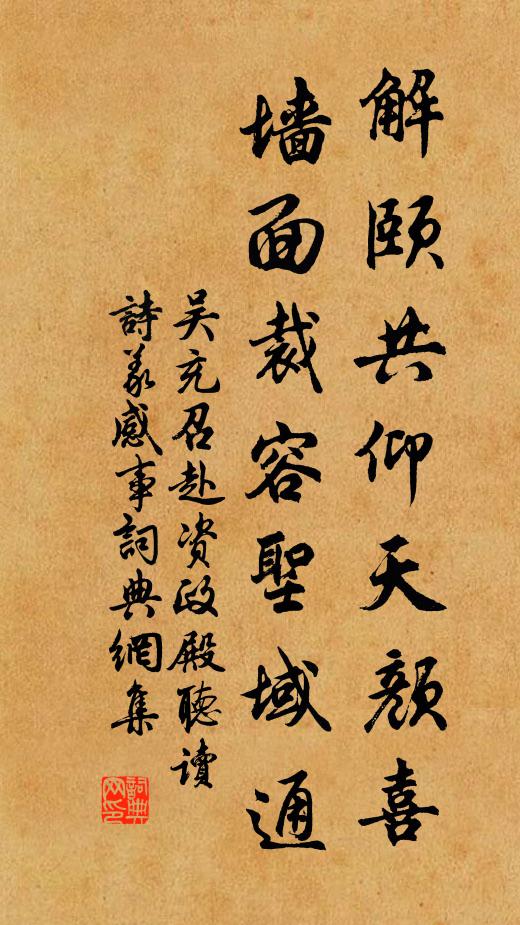 解頤共仰天顏喜
墙面裁容聖域通
吴充召赴资政殿聽读
詩義感事詞典網集
詞典網印